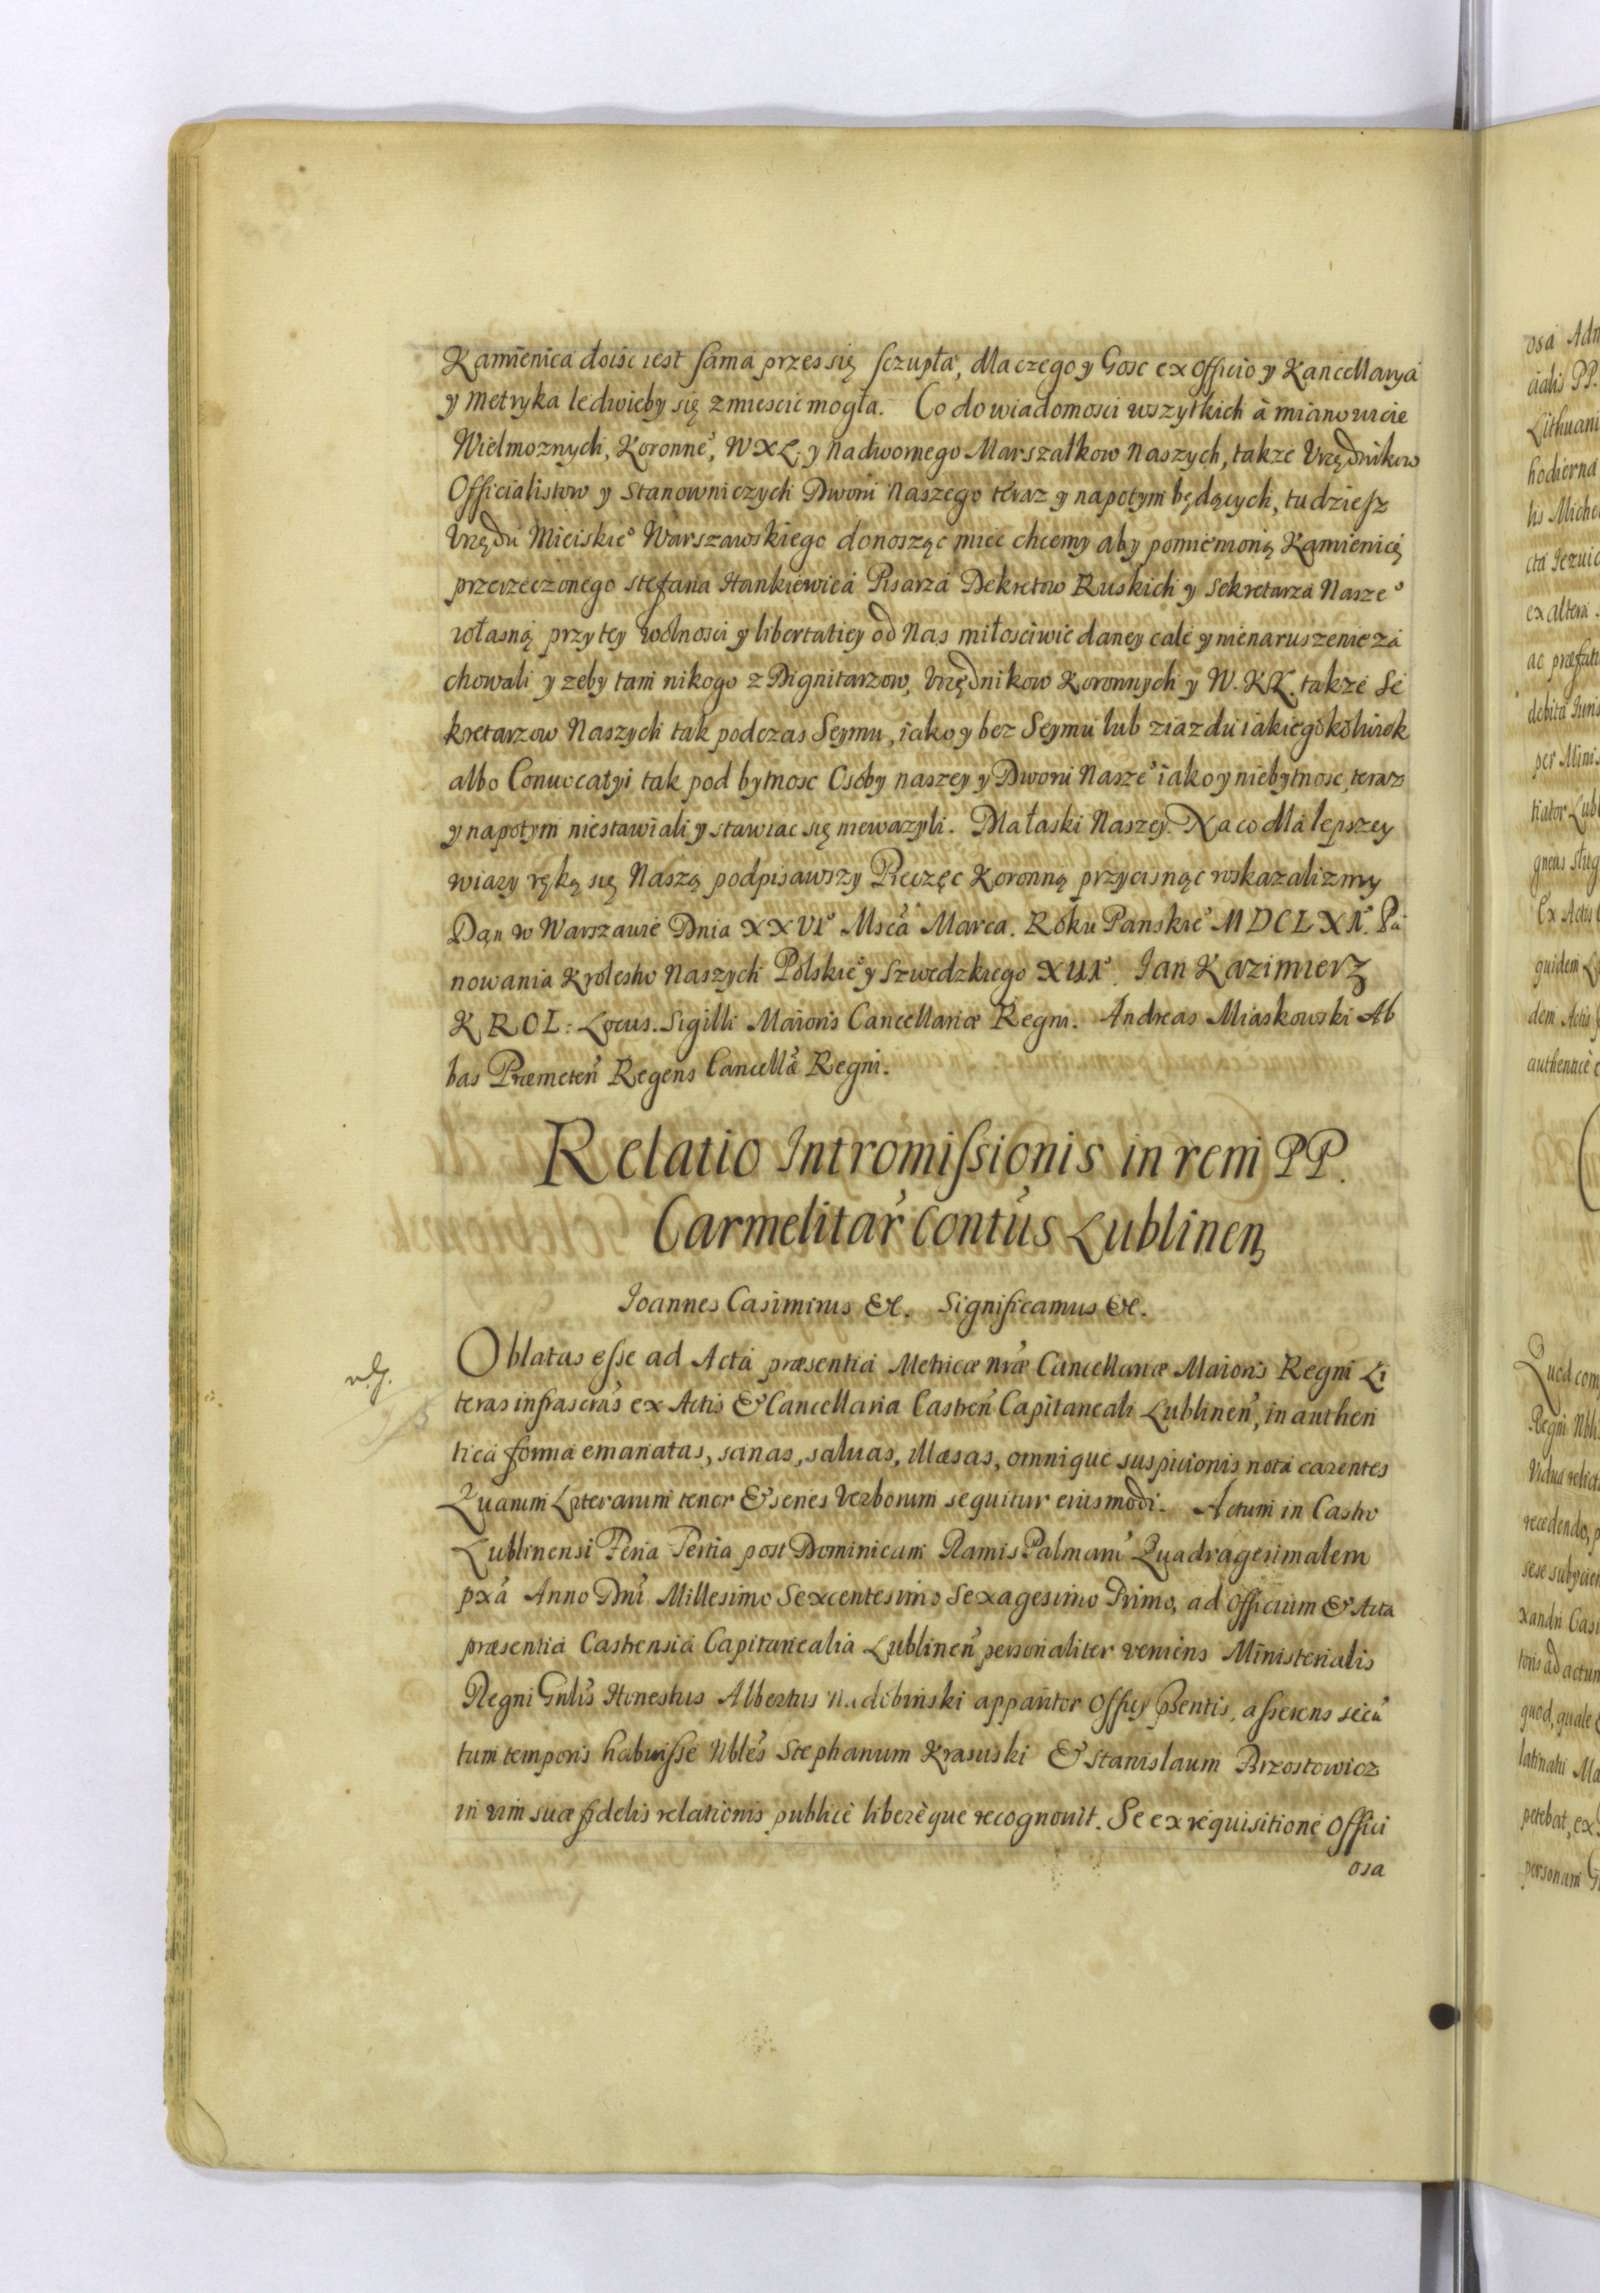 Kamienica dośc iest sama przes się sczupła, dla czego y Gosc ex Officio y Kancellarya
y Metryka ledwieby się zmiescic mogła. Co do wiadomosci wszytkich à mianowicie
Wielmoznych, Koronneº, WXL. y Nadwornego Marszałkow Naszych, takze Vrzędnikow
Officialistow y Stanowniczych Dworu Naszego teraz y napotym będących, tudziesz
Vrzędu Mieiskieº Warszawskiego donosząc miec chcemy aby pomienioną Kamienicę
przerzeczonego Stefana Hankiewica Pisarza Dekretow Ruskich y Sekretarza Naszeº
własną przy tey wolnosci y libertatiey od Nas miłosciwie daney cale y nienaruszenie za
chowali y zeby tam nikogo z Dignitarzow, Vrzędnikow Koronnych y W. X L. takze Se
kretarzow Naszych tak podczas Seymu, iako y bez Seymu lub ziazdu iakiegokolwiek
albo Conuocatyi tak pod bytnosc Osoby naszey y Dworu Naszeº iako y niebytnosc, teraz
y napotym niestawiali y stawiac się niewazyli. Dla łaski Naszey. Na co dla lepszey
wiary ręką się Naszą podpisawszy Pieczęc Koronną przycisnąc roskazalizmy
Dan w Warszawie Dnia XXVIº Msca Marca. Roku Panskieº MDCLXIº. Pa
nowania Krolestw Naszych Polskieº y Szwedzkiego XIIIº. Ian Kazimierz
KROL: Locus. Sigilli Maioris Cancellariæ Regni. Andreas Miaskowski Ab
bas Præmeteñ Regens Cancellæ Regni.
Relatio Intromissionis in rem PP.
Carmelitar̃ Contũs Lublinen
Ioannes Casimirus &c. Significamus &c.
Oblatas esse ad Acta præsentia Metricæ nr̃æ Cancellariæ Maioris Regni Li
teras infrascrãs ex Actis & Cancellaria Castreñ Capitaneali Lublineñ, in authen
tica forma emanatas, sanas, saluas, illæsas, omnique suspicionis nota carentes
Quarum Literarum tenor & series Verborum sequitur eiusmodi. Actum in Castro
Lublinensi Feria Tertia post Dominicam Ramis Palmar̃ Quadragesimalem
pxã Anno Dni Millesimo Sexcentesimo Sexagesimo Primo, ad Officium & Acta
præsentia Castrensia Capitanealia Lublineñ personaliter veniens Ministerialis
Regni Gnlis Honestus Albertus apparitor Officy pñtis, asserens secũ
tum temporis habuisse Nbles Stephanum Krasuski & Stanislaum Brzostowicz
in vim suæ fidelis relationis publicè liberèque recognouit. Se ex requisitione Offici
osa